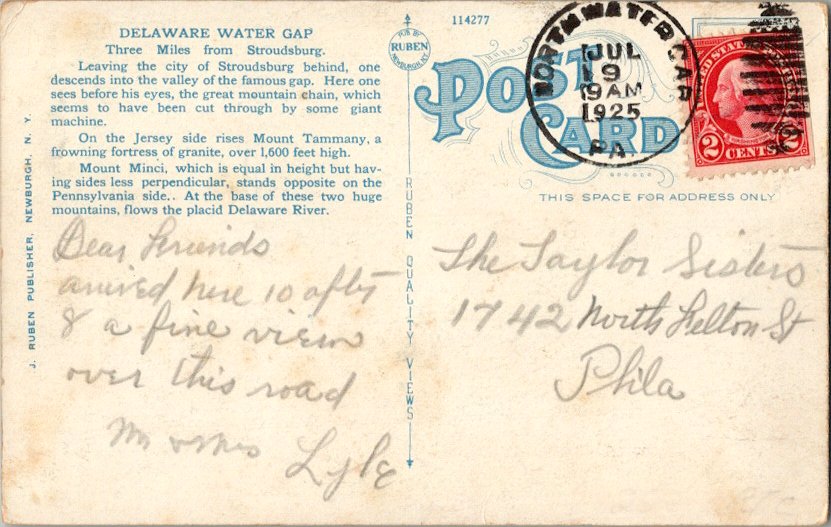 DELAWARE WATER GAP
Three Miles from Stroudsburg.
Leaving the city of Stroudsburg behind, one
descends into the valley of the famous gap. Here one
sees before his eyes, the great mountain chain, which
seems to have been cut through by some giant
machine.
On the Jersey side rises Mount Tammany, a
frowning fortress of granite, over 1,600 feet high.
Mount Minci, which is equal in height but hav-
ing sides less perpendicular, stands opposite on the
Pennsylvania side.. At the base of these two huge
mountains, flows the placid Delaware River.
J. RUBEN PUBLISHER, NEWBURGH, N. Y.
Dear Friends
arrived here 10 after
8 a fine view
over this road
Mr & Mrs
Lyle
PUB BY
RUBEN
NEWBURGH, N.Y.
RUBEN QUALITY VIEWS
114277
POST
CARD
THIS SPACE FOR ADDRESS ONLY
NORTH WATER GAP
JUL
9
9 AM
1925
PA.
UNITED STATES POSTAGE
2 CENTS 2
The Taylor Sisters
1742 North Felton St
Phila